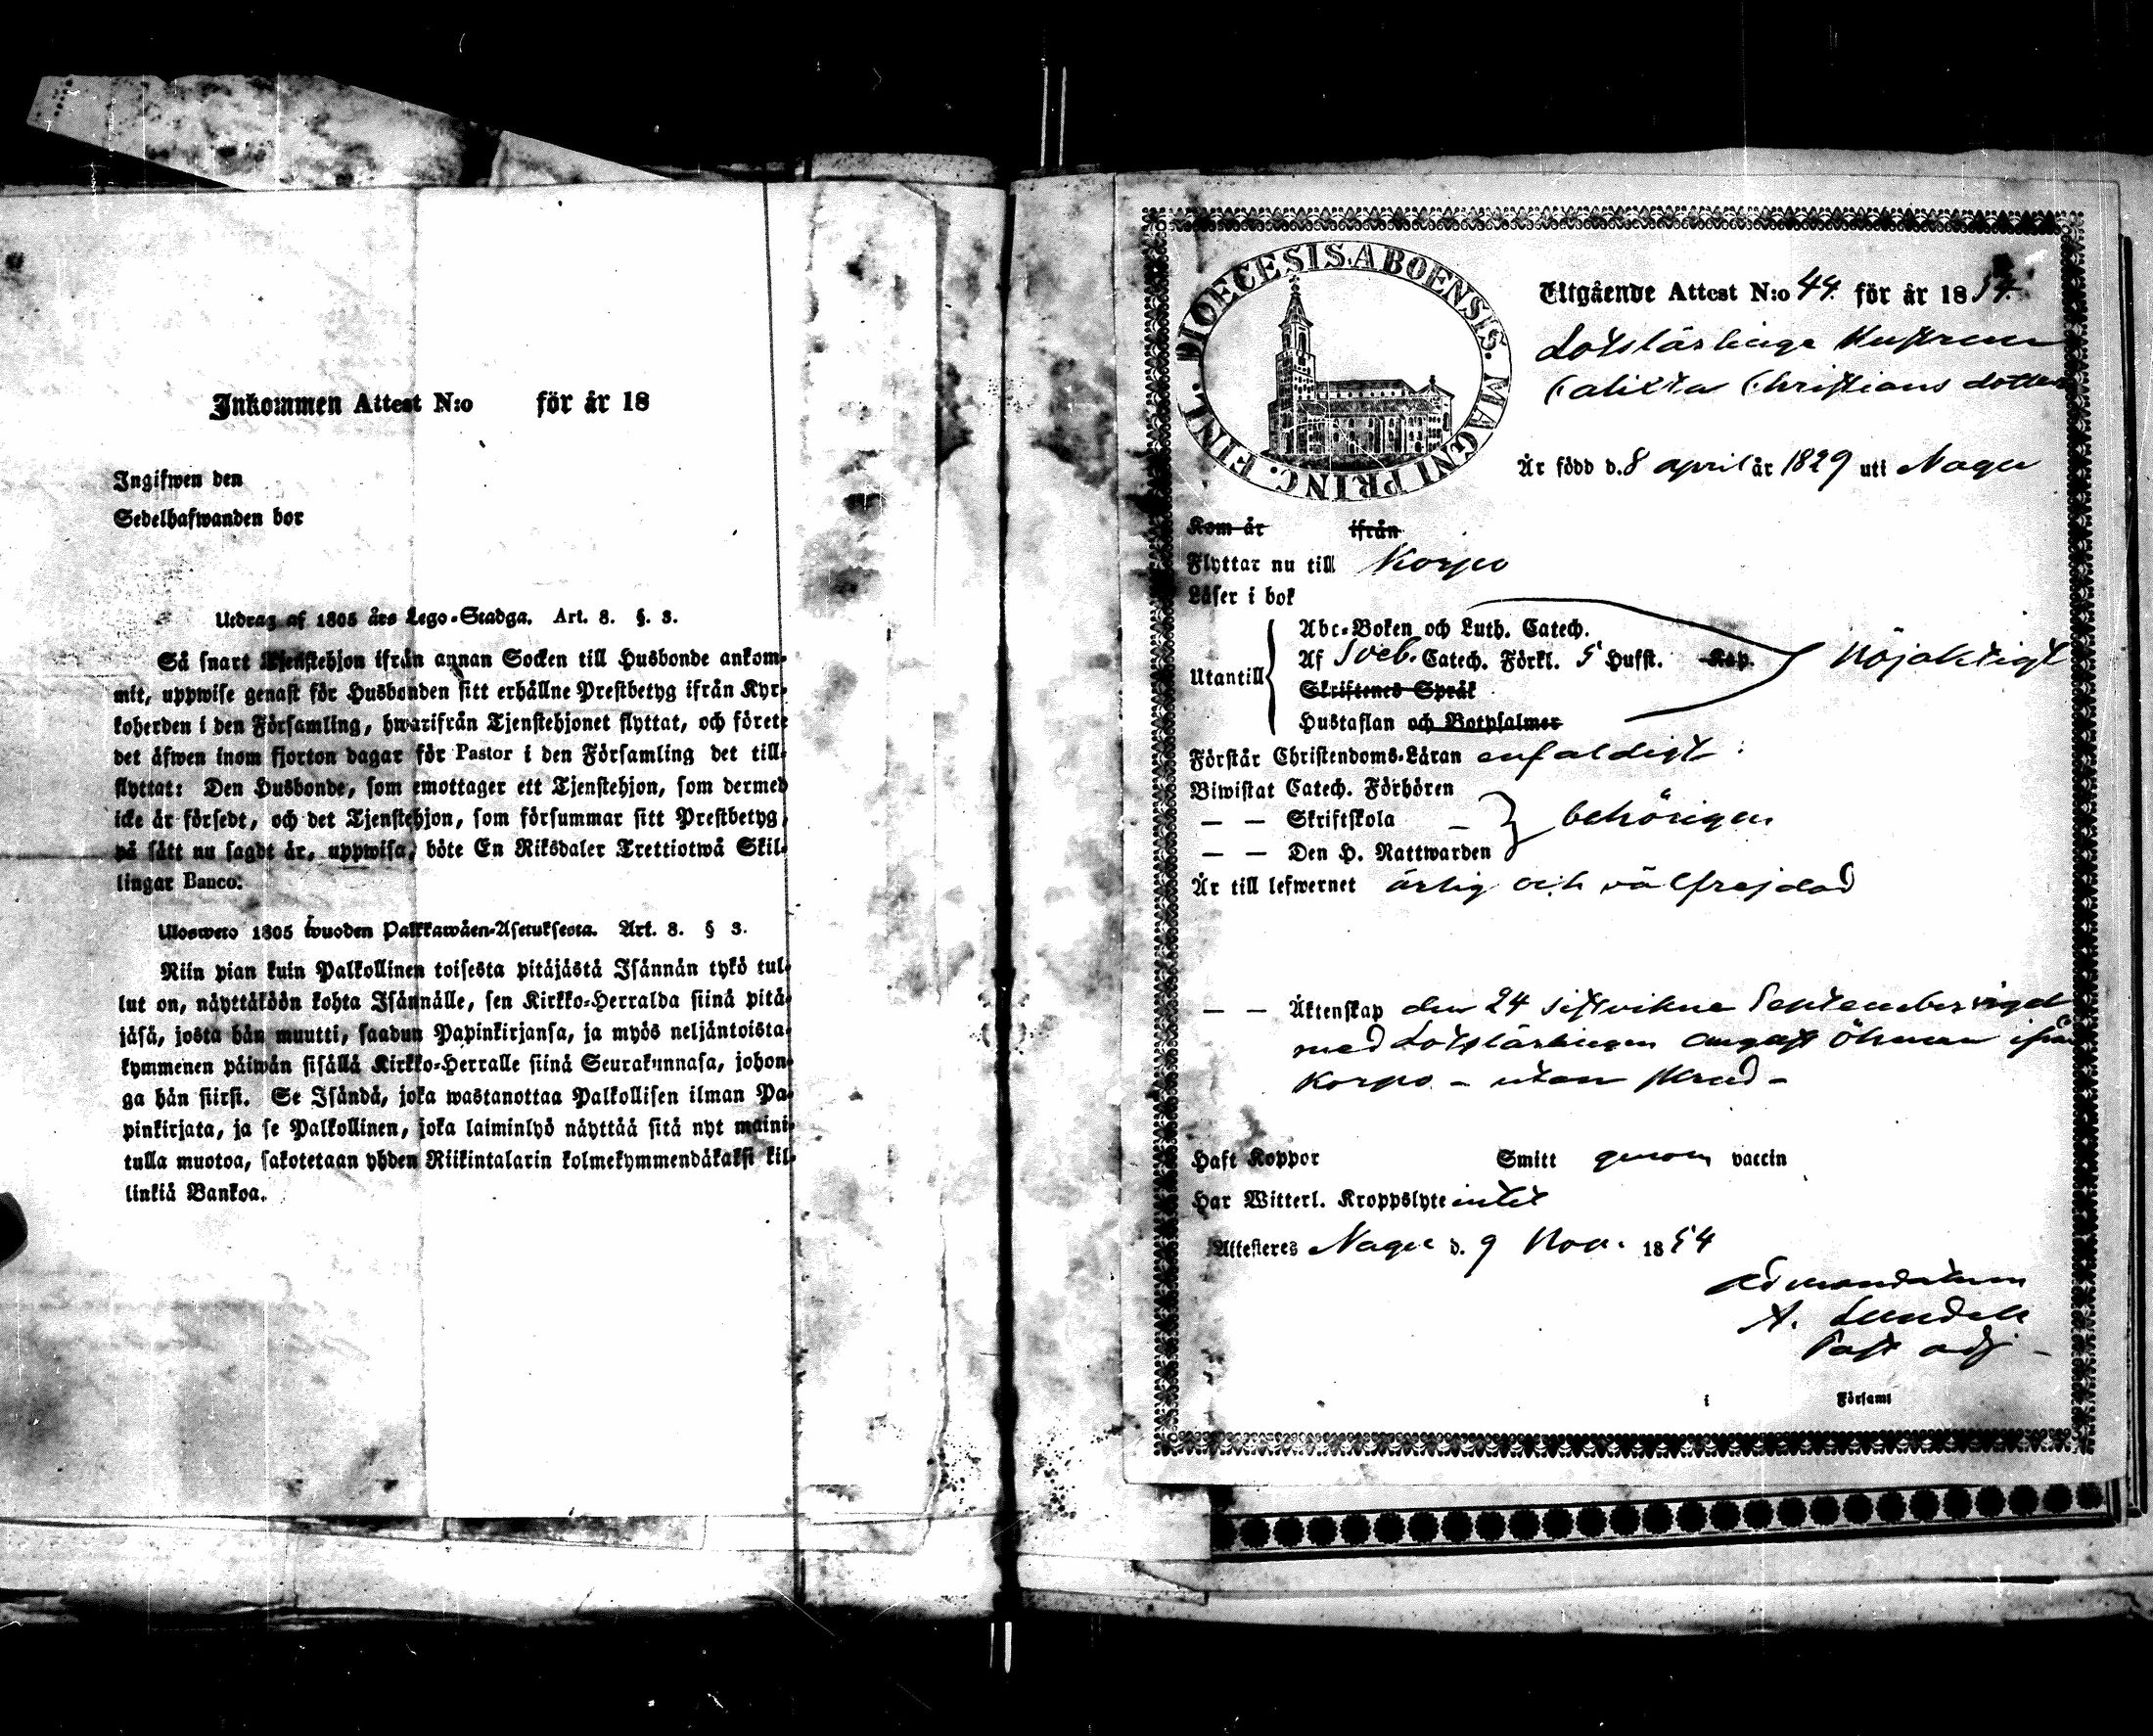 Inkommen Attest N:o för år 18
Ingifwen den
Sedelhafwanden bor
Utdrag af 1805 års Lego-Stadga. Art. 8. §. 3.
Så snart Tjenstehjon ifrån annan Socken till Husbonde ankom-
mit, uppwise genast för Husbonden sitt erhållne Prestbetyg ifrån Kyr-
koherden i den Församling, hwarifrån Tjenstehjonet flyttat, och förete
det äfwen inom fjorton dagar för Pastor i den Församling det till-
flyttat: Den Husbonde, som emottager ett Tjenstehjon, som dermed
icke är försedt, och det Tjenstehjon, som försummar sitt Prestbetyg,
på sätt nu sagdt är, uppwisa, böte En Riksdaler Trettiotwå Skil-
lingar Banco.
Uloswеto 1805 wuoden Palkkawäen-Asetuksesta. Art. 8. § 3.
Niin pian kuin Palkollinen toisesta pitäjästä Isännän tykö tul-
lut on, näyttäköön kohta Isännälle, sen Kirkko-Herralda siinä pitä-
jäsä, josta hän muutti, saadun Papinkirjansa, ja myös neljäntoista-
kymmenen päiwän sisällä Kirkko-Herralle siinä Seurakunnasa, johon-
ga hän siirsi. Se Isändä, joka wastanottaa Palkollisen ilman Pa-
pinkirjata, ja se Palkollinen, joka laiminlyö näyttää sitä nyt maini-
tulla muotoa, sakotetaan yhden Riikintalarin kolmekymmendäkaksi kil-
linkiä Bankoa.
DIOECESIS. ABOENSIS. MAGNI PRINC. FINL.
Utgående Attest N:o 44. för år 1854.
Lotslärlings Hustrun
Calixta Christians dotter
Är född d. 8 april år 1829 uti Nagu
Kom år ifrån
Flyttar nu till Korpo
Läser i bok
Utantill
Abc-Boken och Luth. Catech.
Af Sveb. Catech. Förkl. 5 Hufst. Kap. Nöjaktigt
Skriftenes Språk
Hustaflan och Botpsalmer
Förstår Christendoms-Läran enfaldigt.
Biwistat Catech. Förhören
— — Skriftskola — behörigen
— — Den H. Nattwarden
Är till lefwernet ärlig och välfrejdad
— — Äktenskap den 24 sistvikne September vigd
med Lotslärlingen August Öhman ifrån
Korpo - utan
Haft Koppor Smitt genom vaccin
Har Witterl. Kroppslyte intet
Attesteres Nagu d. 9 Nov. 1854
Ad mandatum
A. Lundell
Past adj -
i Församl